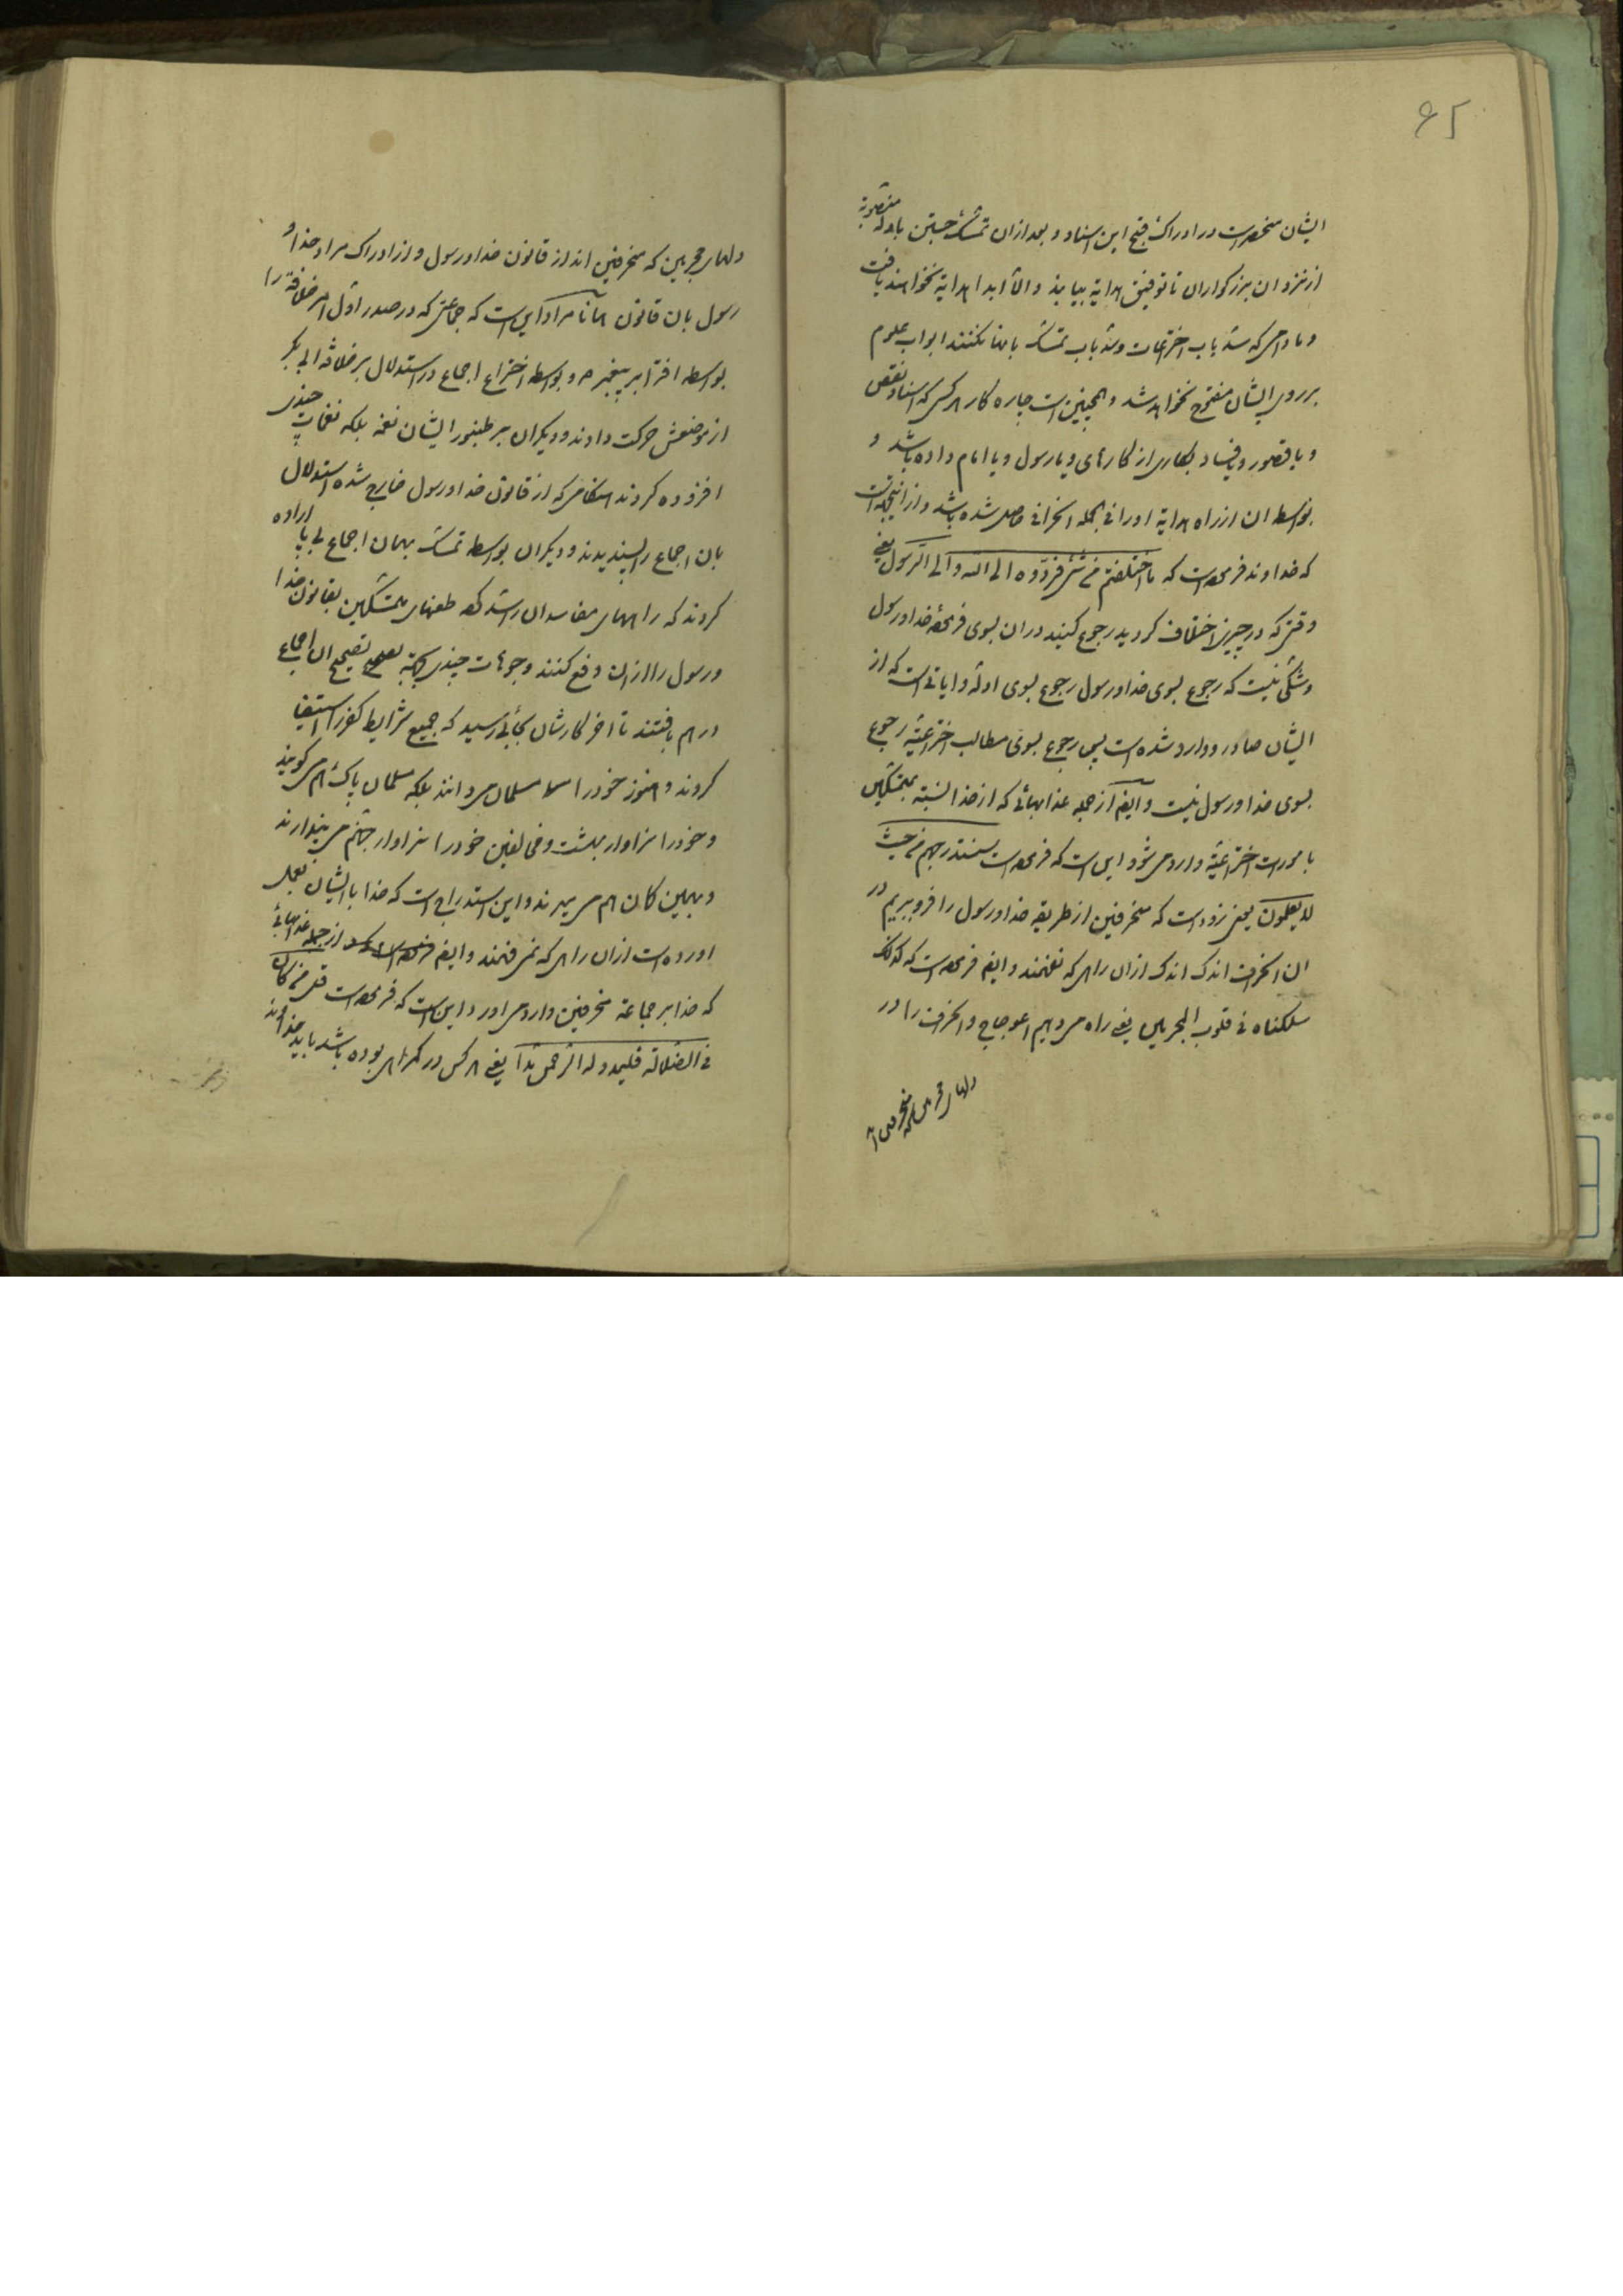 ۶۵
ایشان منحصر است در ادراک قبح این اسناد و بعد از ان تمسک جستن بادله منصوبه
از نزد ان بزرکواران تا توفیق هدایة بیابند والا ابدا هدایة نخواهند یافت
و مادامی که سد باب اختراعات و سد باب تمسک بانها نکنند ابواب علوم
بر روی ایشان مفتوح نخواهد شد و همچنین است چاره کار هر کس که اسناد نقص
و یا قصور و یا فساد بکاری از کارهای و یا رسول و یا امام داده باشد و
بواسطه ان از راه هدایة او را فی الجمله انحرافی حاصل شده باشد و از اینجهة است
که خداوند فرموده است که ما اختلفتم فی شئ فردوه الی الله والی الرسول یعنی
وقتی که در چیزی اختلاف کردید رجوع کنید در ان بسوی فرموده خدا و رسول
و شکی نیست که رجوع بسوی خدا و رسول رجوع بسوی ادله و ایاتی است که از
ایشان صادر و وارد شده است پس رجوع بسوی مطالب اختراعیه رجوع
بسوی خدا و رسول نیست و ایضا از جمله عذابهائی که از خدا نسبة بمتمسکین
بامورات اختراعیه وارد می شود این است که فرموده است سنستدرجهم من حیث
لا یعلمون یعنی زود است که منحرفین از طریقه خدا و رسول را فرو بریم در
ان انحراف اندک اندک از ان راهی که نفهمند و ایضا فرموده است که کذلک
سلکناه فی قلوب المجرمین یعنی راه می دهیم اعوجاج و انحراف را در
دلهای مجرمین که منحرفین
دلهای مجرمین که منحرفین اند از قانون خدا و رسول و از ادراک مراد خدا و
رسول بان قانون همانا مراد این است که جماعتی که در صدر اول امر خلافة را
بواسطه افترا بر پیغمبر ص و بواسطه اختراع اجماع در استدلال بر خلافه ابی بکر
از موضعش حرکت دادند و دیکران بر طنبور ایشان نغمه بلکه نغمات چندی
افزوده کردند هنکامی که از قانون خدا و رسول خارج شده استدلال
بان اجماع را پسندیدند و دیکران بواسطه تمسک بهمان اجماع بی پا اراده
کردند که راههای مفاسد ان را سد کرده طعنهای متمسکین بقانون خدا
و رسول را از ان دفع کنند وجوهات چندی بجهة تصحیح ان اجماع
درهم بافتند تا اخر کارشان بجائی رسید که جمیع شرایط کفر را استیفا
کردند و هنوز خود را مسلمان می دانند بلکه مسلمان پاک هم می کویند
و خود را سزاوار بهشت و مخالفین خود را سزاوار جهنم می پندارند
و بهمین کمان هم می میرند و این استدراجی است که خدا با ایشان بعمل
اورده است از ان راهی که نمی فهمند و ایضا از جمله عذابهائی
که خدا بر جماعة منحرفین وارد می اورد این است که فرموده است قل من کان
فی الضلالة فلیمدد له الرحمن مدا یعنی هر کس در کمراهی بوده باشد باید خداوند